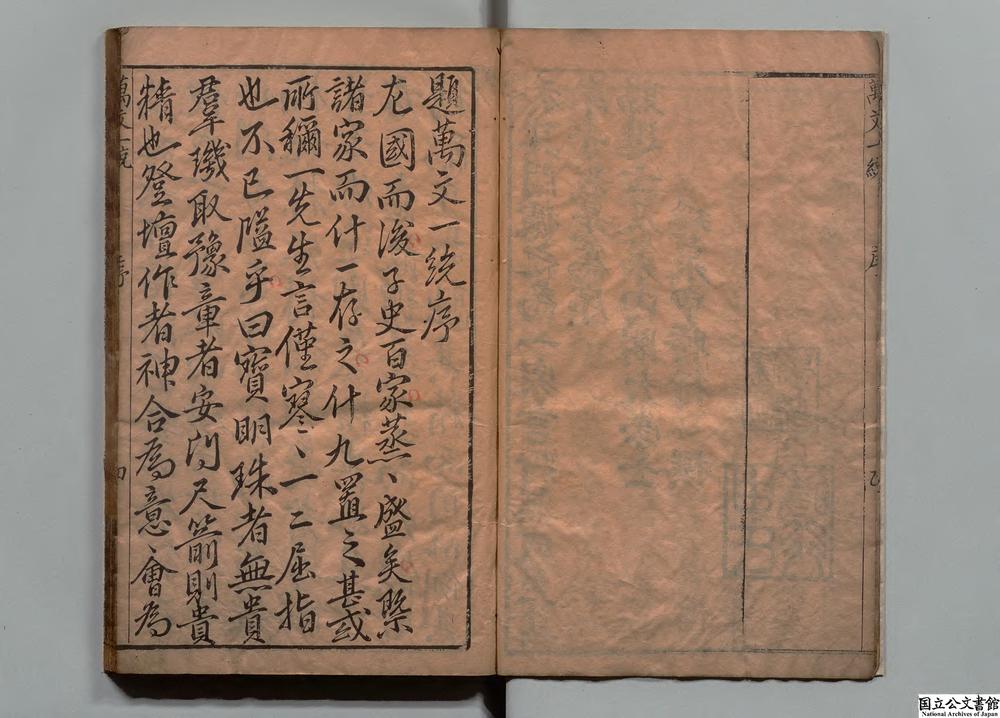 題萬文一統序
左國而後子史百家蒸〻盛矣槩
諸家而什一存之什九置之甚或
所稱一先生言僅寥〻一二屈指
也不已隘乎曰寶明珠者無貴
羣璣取豫章者安问尺箭則貴
精也登壇作者神合為意會為
萬文一統
序
四
国立公文書館
National Archives of Japan